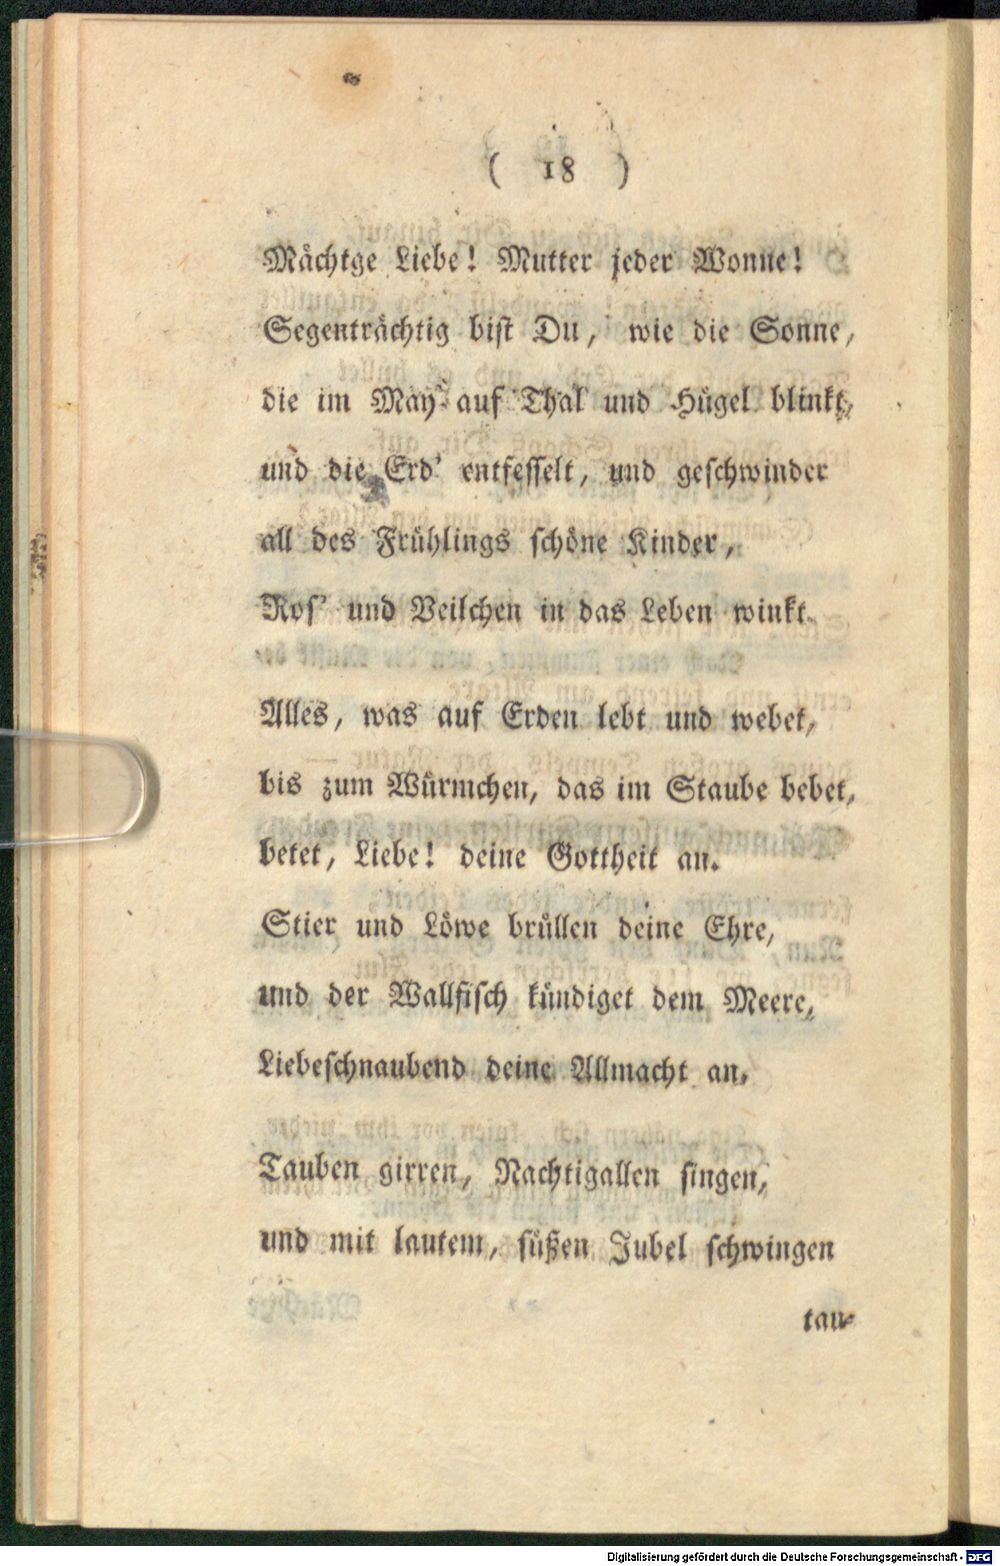 ( 18 )
Mächtge Liebe! Mutter jeder Wonne!
Segenträchtig bist Du, wie die Sonne,
die im May auf Thal und Hügel blinkt,
und die Erd' entfesselt, und geschwinder
all des Frühlings schöne Kinder,
Ros' und Veilchen in das Leben winkt.
Alles, was auf Erden lebt und webet,
bis zum Würmchen, das im Staube bebet,
betet, Liebe! deine Gottheit an.
Stier und Löwe brüllen deine Ehre,
und der Wallfisch kündiget dem Meere,
Liebeschnaubend deine Allmacht an.
Tauben girren, Nachtigallen singen,
und mit lautem, süßen Jubel schwingen
tau-
Digitalisierung gefördert durch die Deutsche Forschungsgemeinschaft - DFG